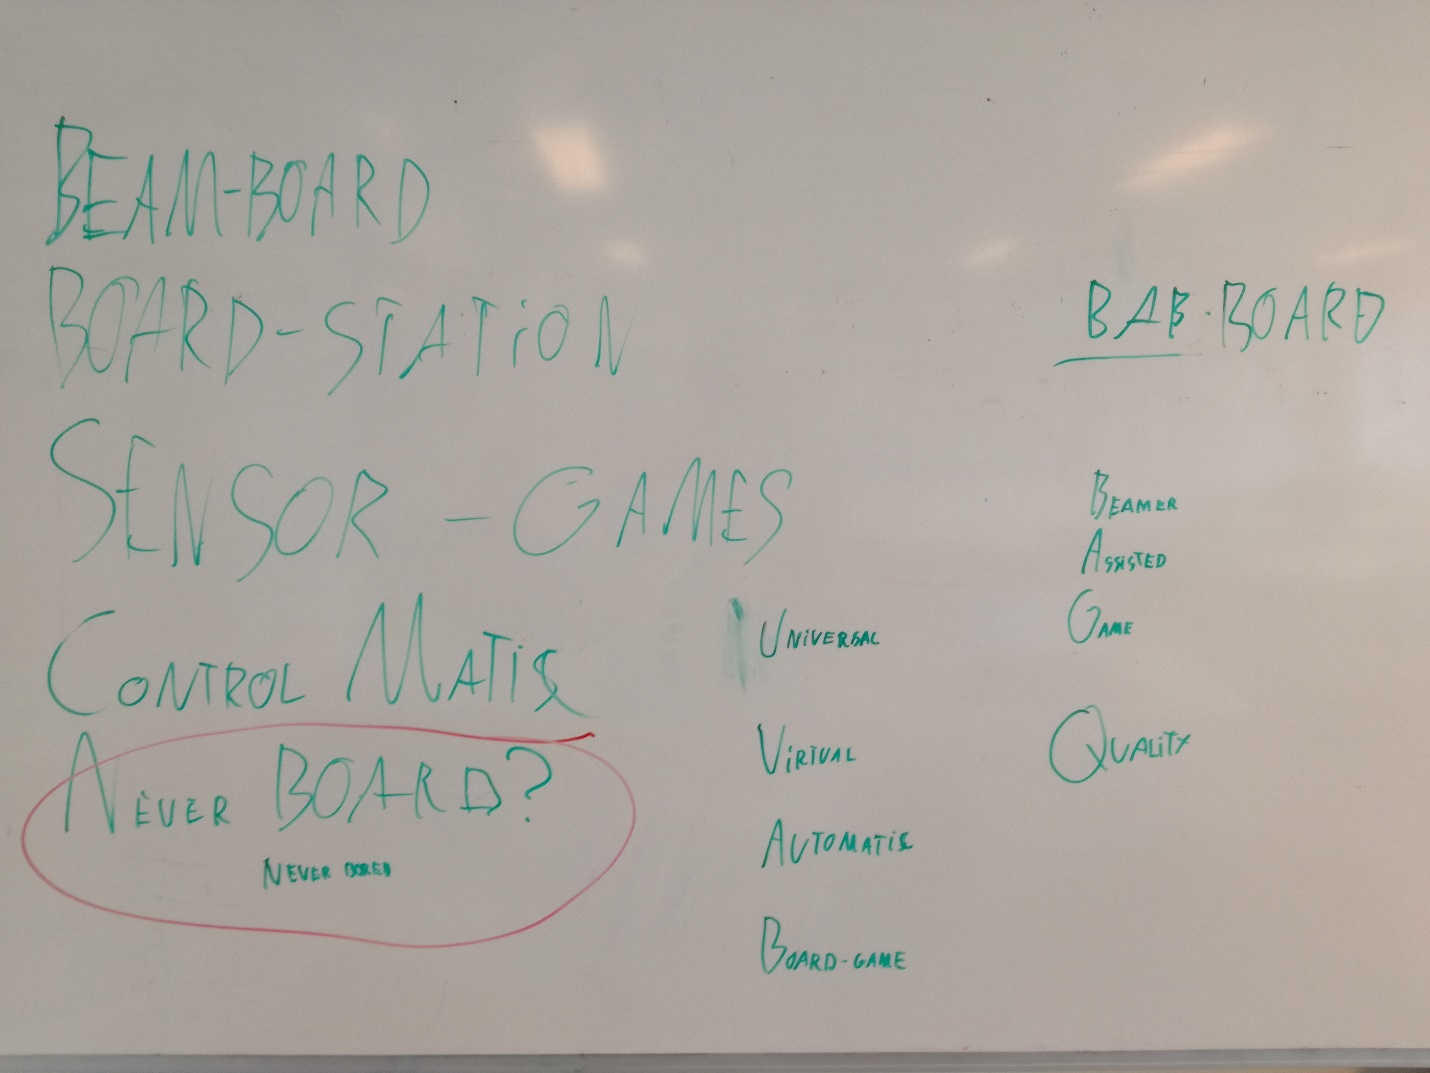 BEAM-BOARD
BOARD-STATION
SENSOR - GAMES
CONTROL MATIC
NEVER BOARD?
NEVER BORED
UNIVERSAL
VIRTUAL
AUTOMATIC
BOARD-GAME
BAB-BOARD
BEAMER
ASSISTED
GAME
QUALITY